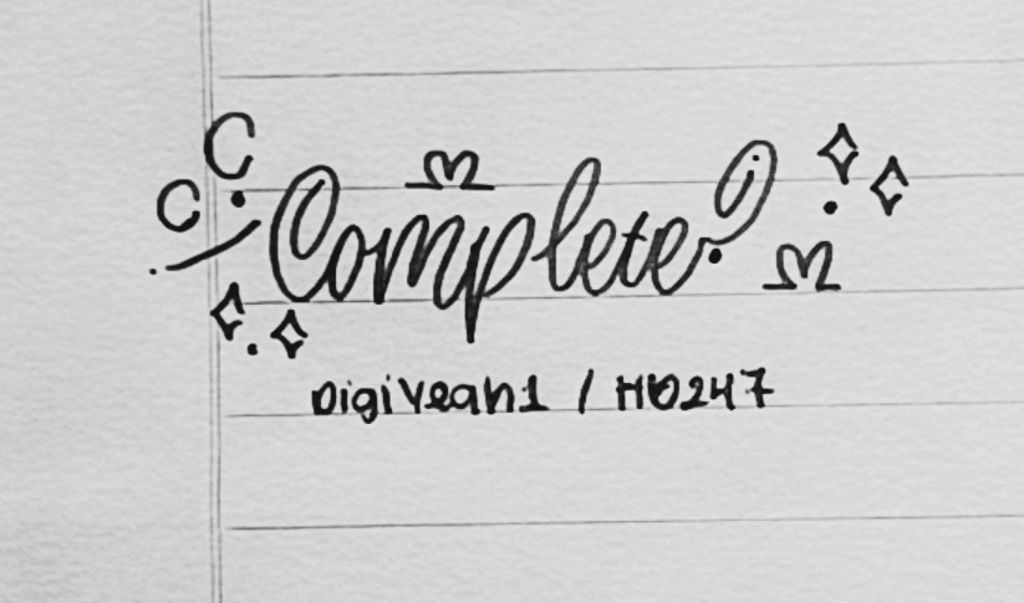 C C
Complete?
DigiYeah1 / HD247